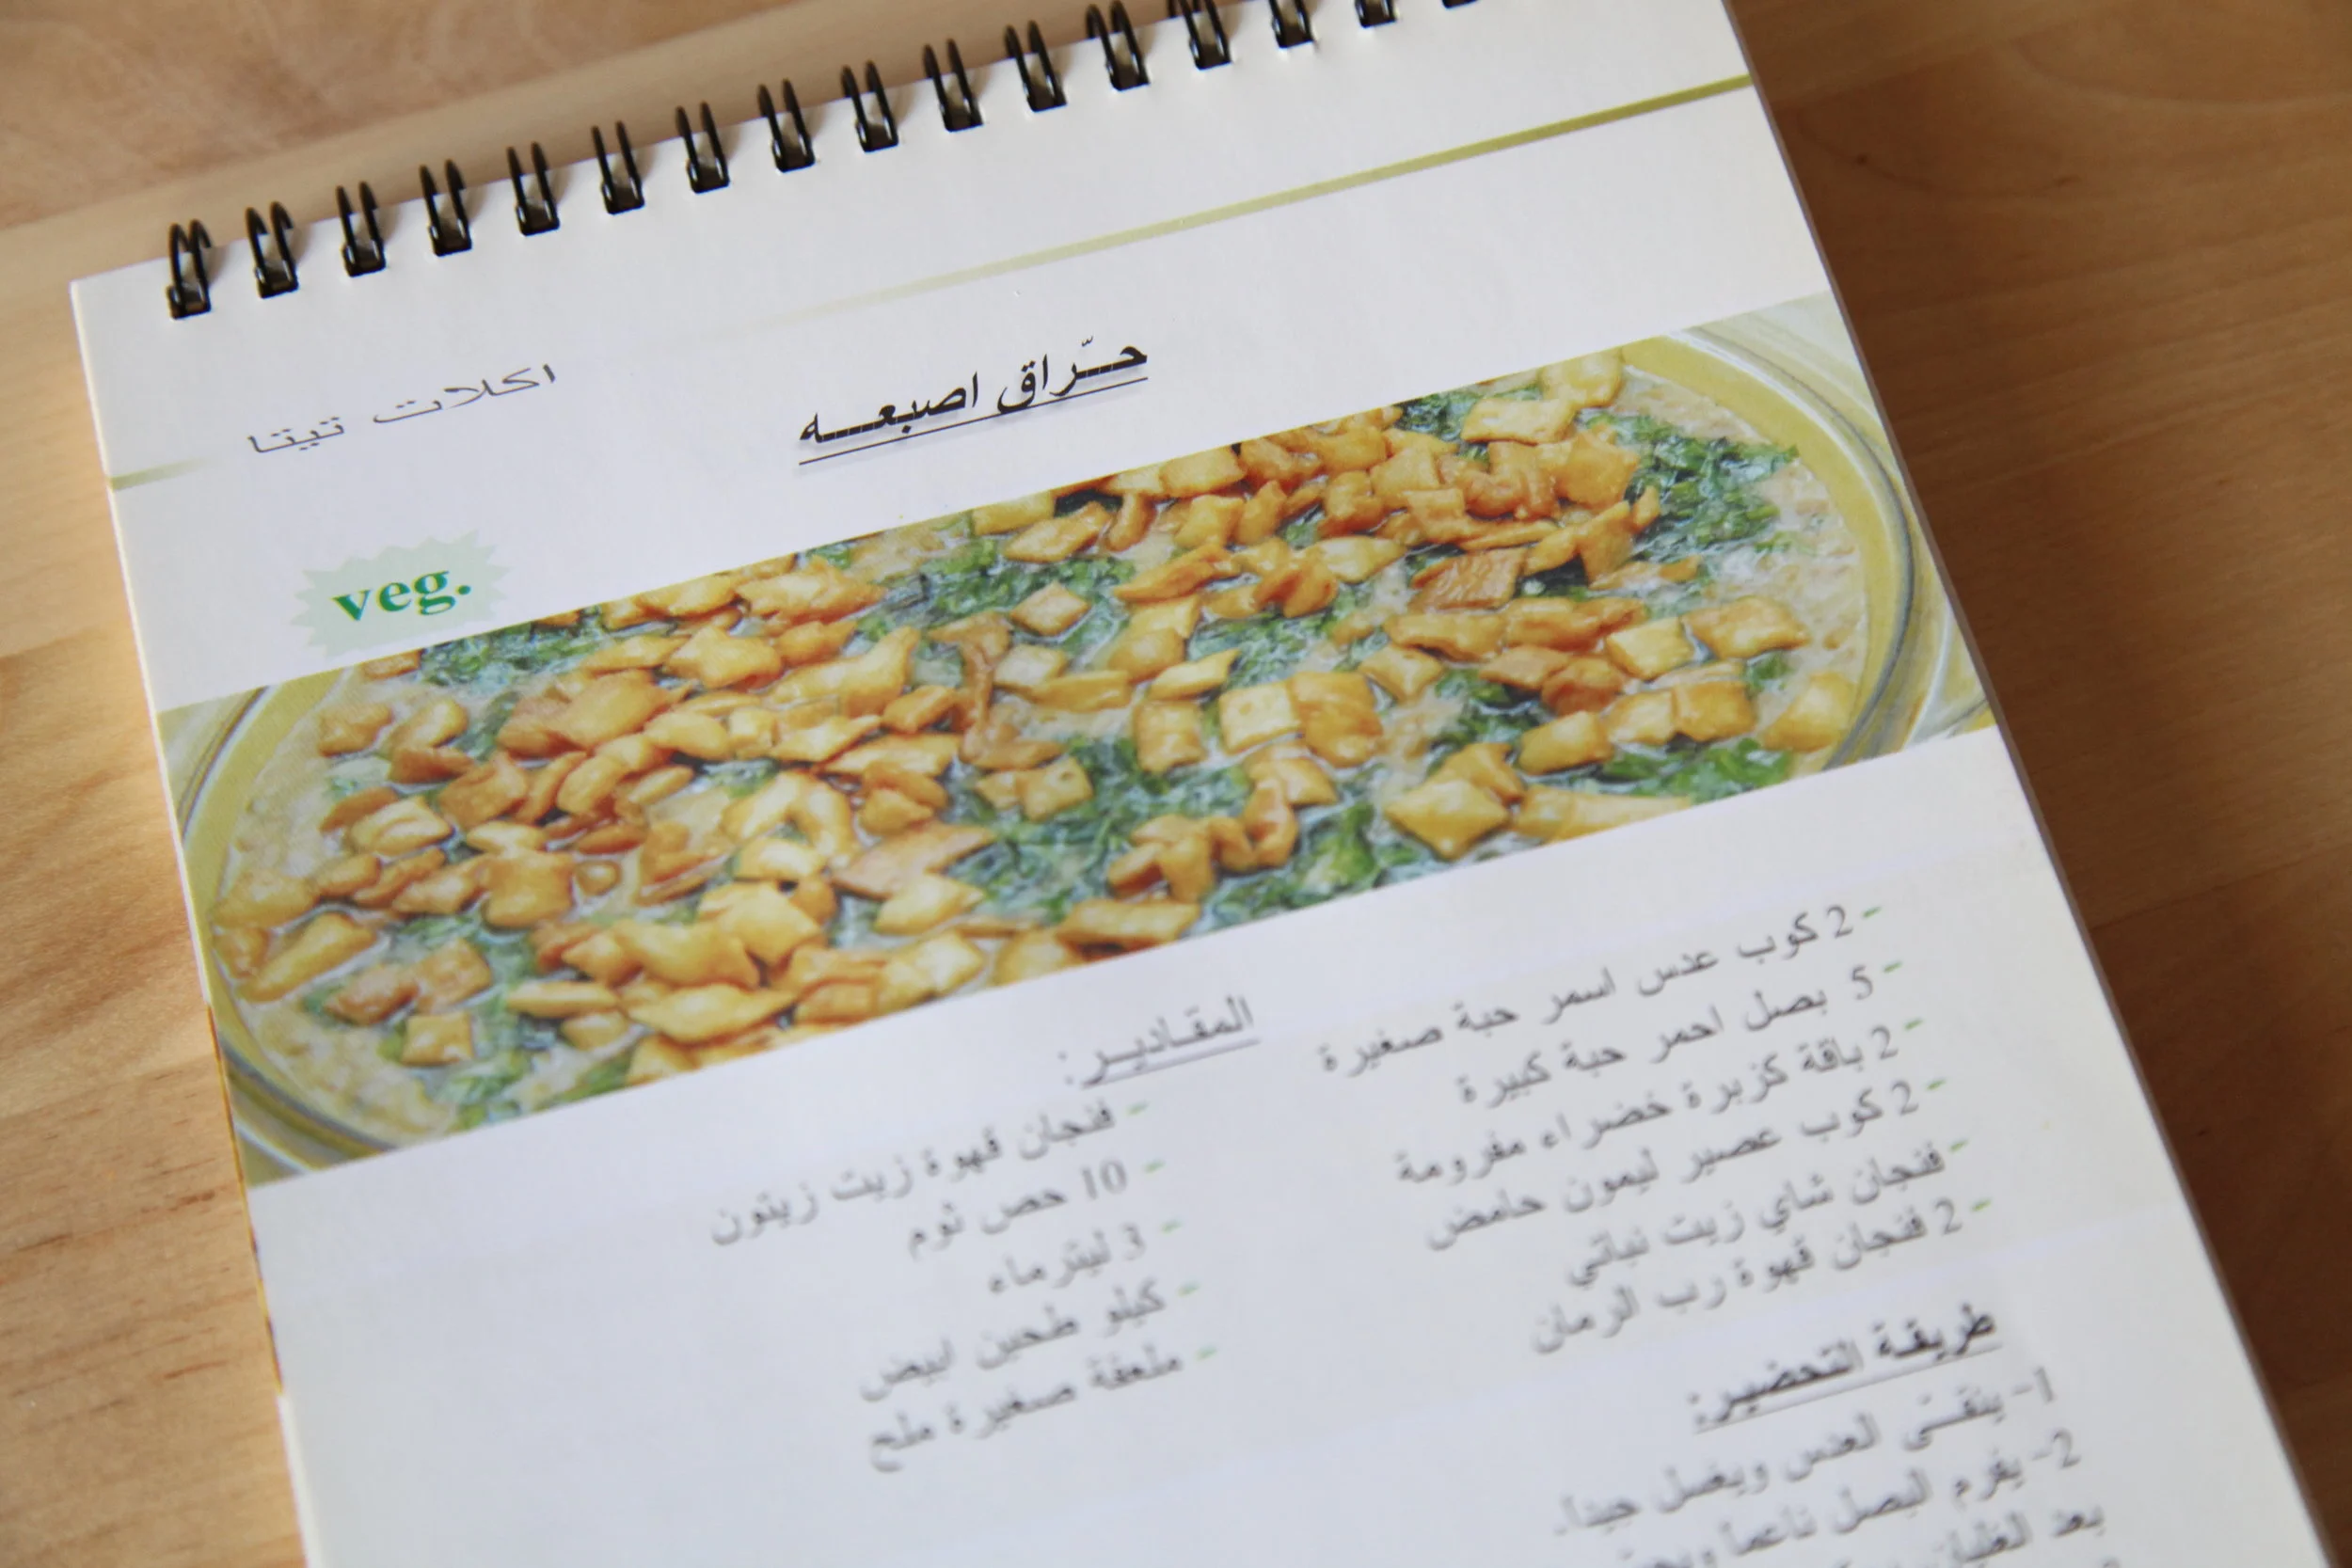 حرّاق اصبعه
اكلات تيتا
veg.
المقادير:
- 2 كوب عدس اسمر حبة صغيرة
- 5 بصل احمر حبة كبيرة
- 2 باقة كزبرة خضراء مفرومة
- 2 كوب عصير ليمون حامض
- فنجان شاي زيت نباتي
- 2 فنجان قهوة رب الرمان
- فنجان قهوة زيت زيتون
- 10 حص ثوم
- 3 ليترماء
- كيلو طحين ابيض
- ملعقة صغيرة ملح
طريقة التحضير:
1- ينقـّى العدس ويغسل جيداً.
2- يفرم البصل ناعماً
بعد الغليان